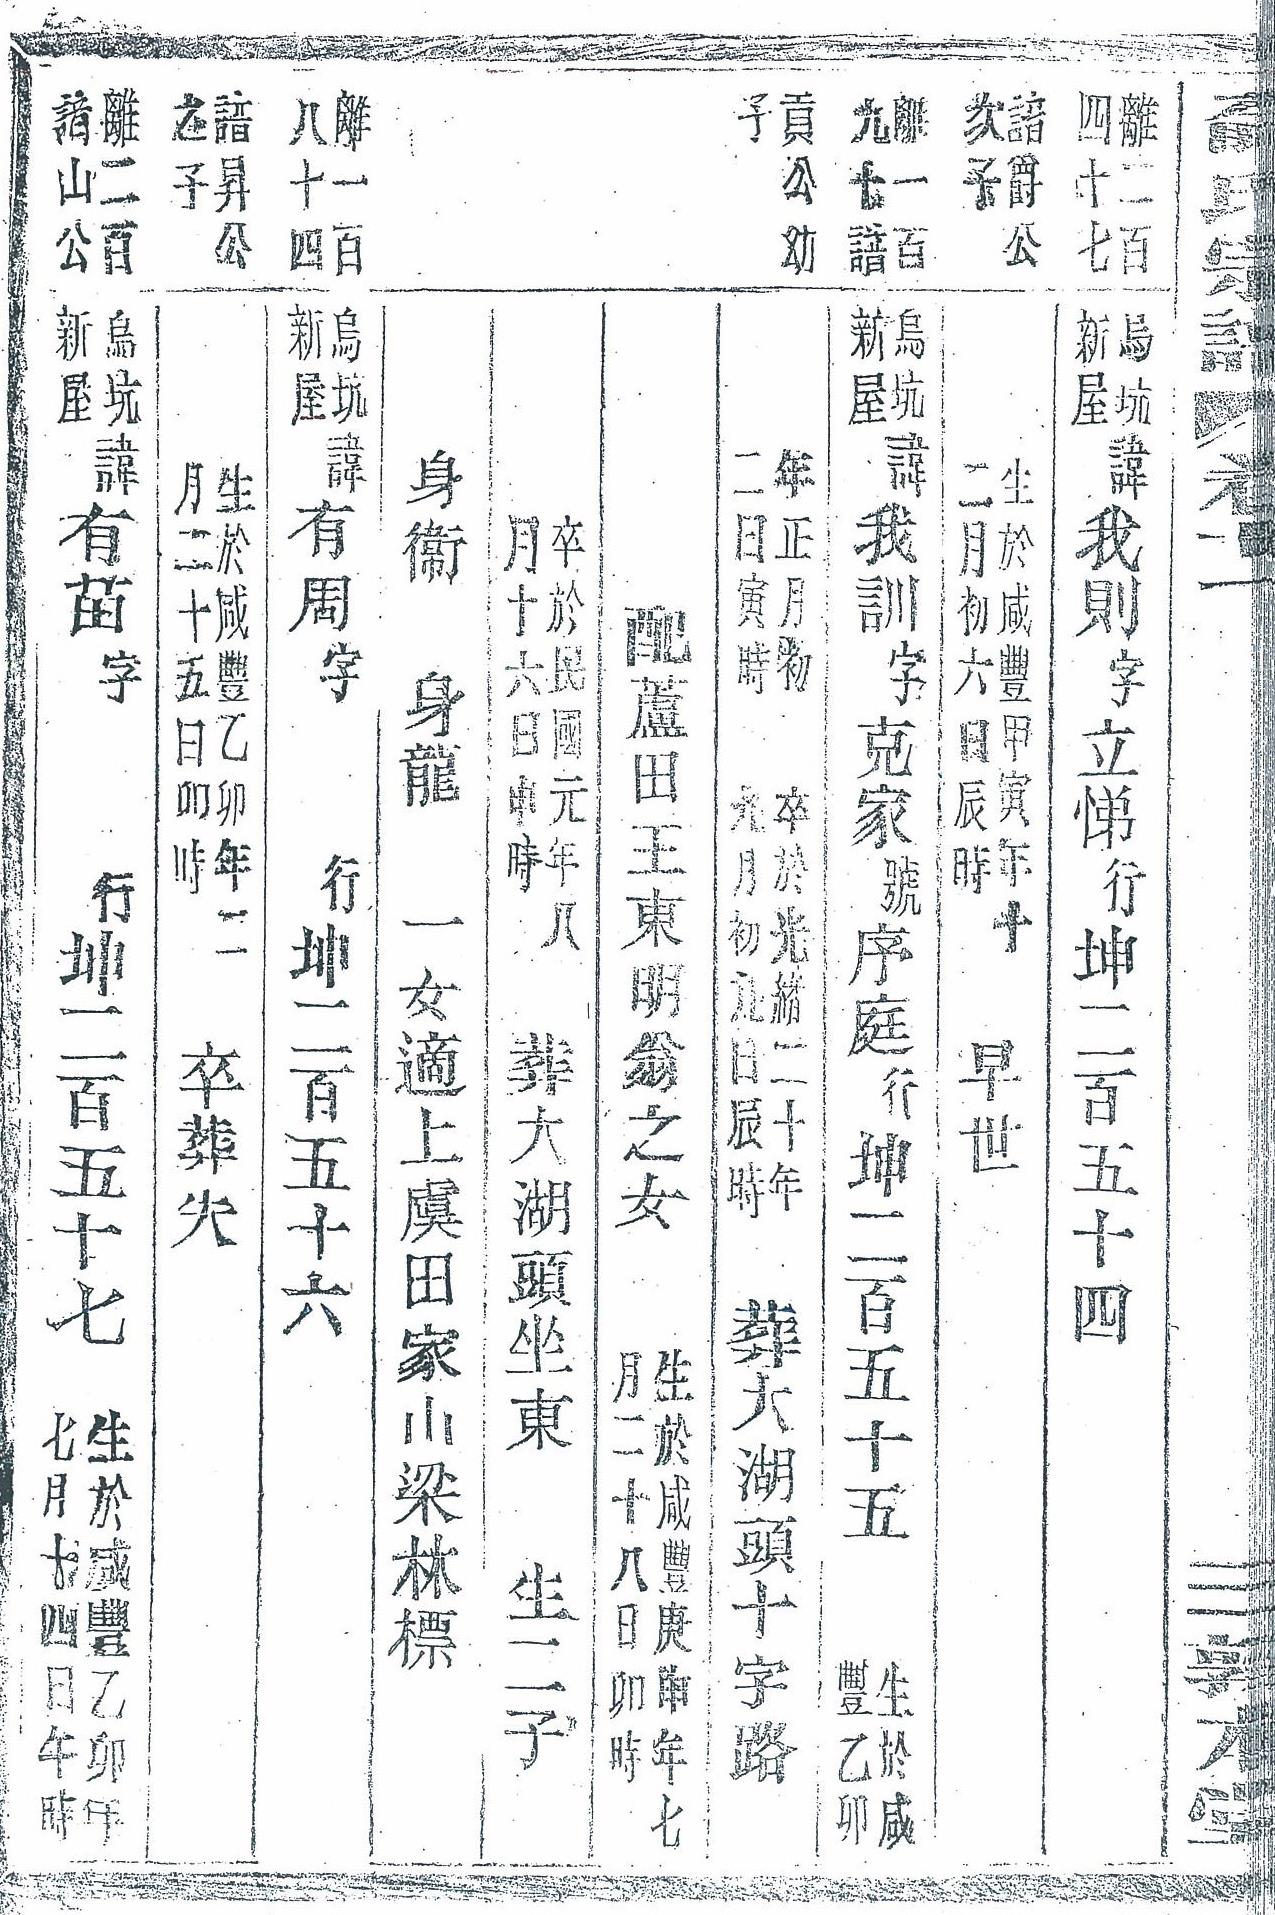 離二百四十七 烏坑新屋 諱我則字立悌行坤二百五十四
諳爵公次子 生於咸豐甲寅年十二月初六日辰時 早世
離一百九十諳 烏坑新屋 諱我訓字克家號序庭行坤二百五十五 生於咸豐乙卯
貢公幼子 年正月初二日寅時 卒於光緒二十年九月初九日辰時 葬大湖頭十字路
配蘆田王東明翁之女 生於咸豐庚申年七月二十八日卯時
卒於民國元年八月十六日申時 葬大湖頭坐東 生二子
身衞 身龍 一女適上虞田家山梁林標
離一百八十四 烏坑新屋 諱有周字 行坤二百五十六
諳昇公之子 生於咸豐乙卯年二月二十五日卯時 卒葬失
離二百諳山公 烏坑新屋 諱有苗字 行坤二百五十七 生於咸豐乙卯年七月十四日午時